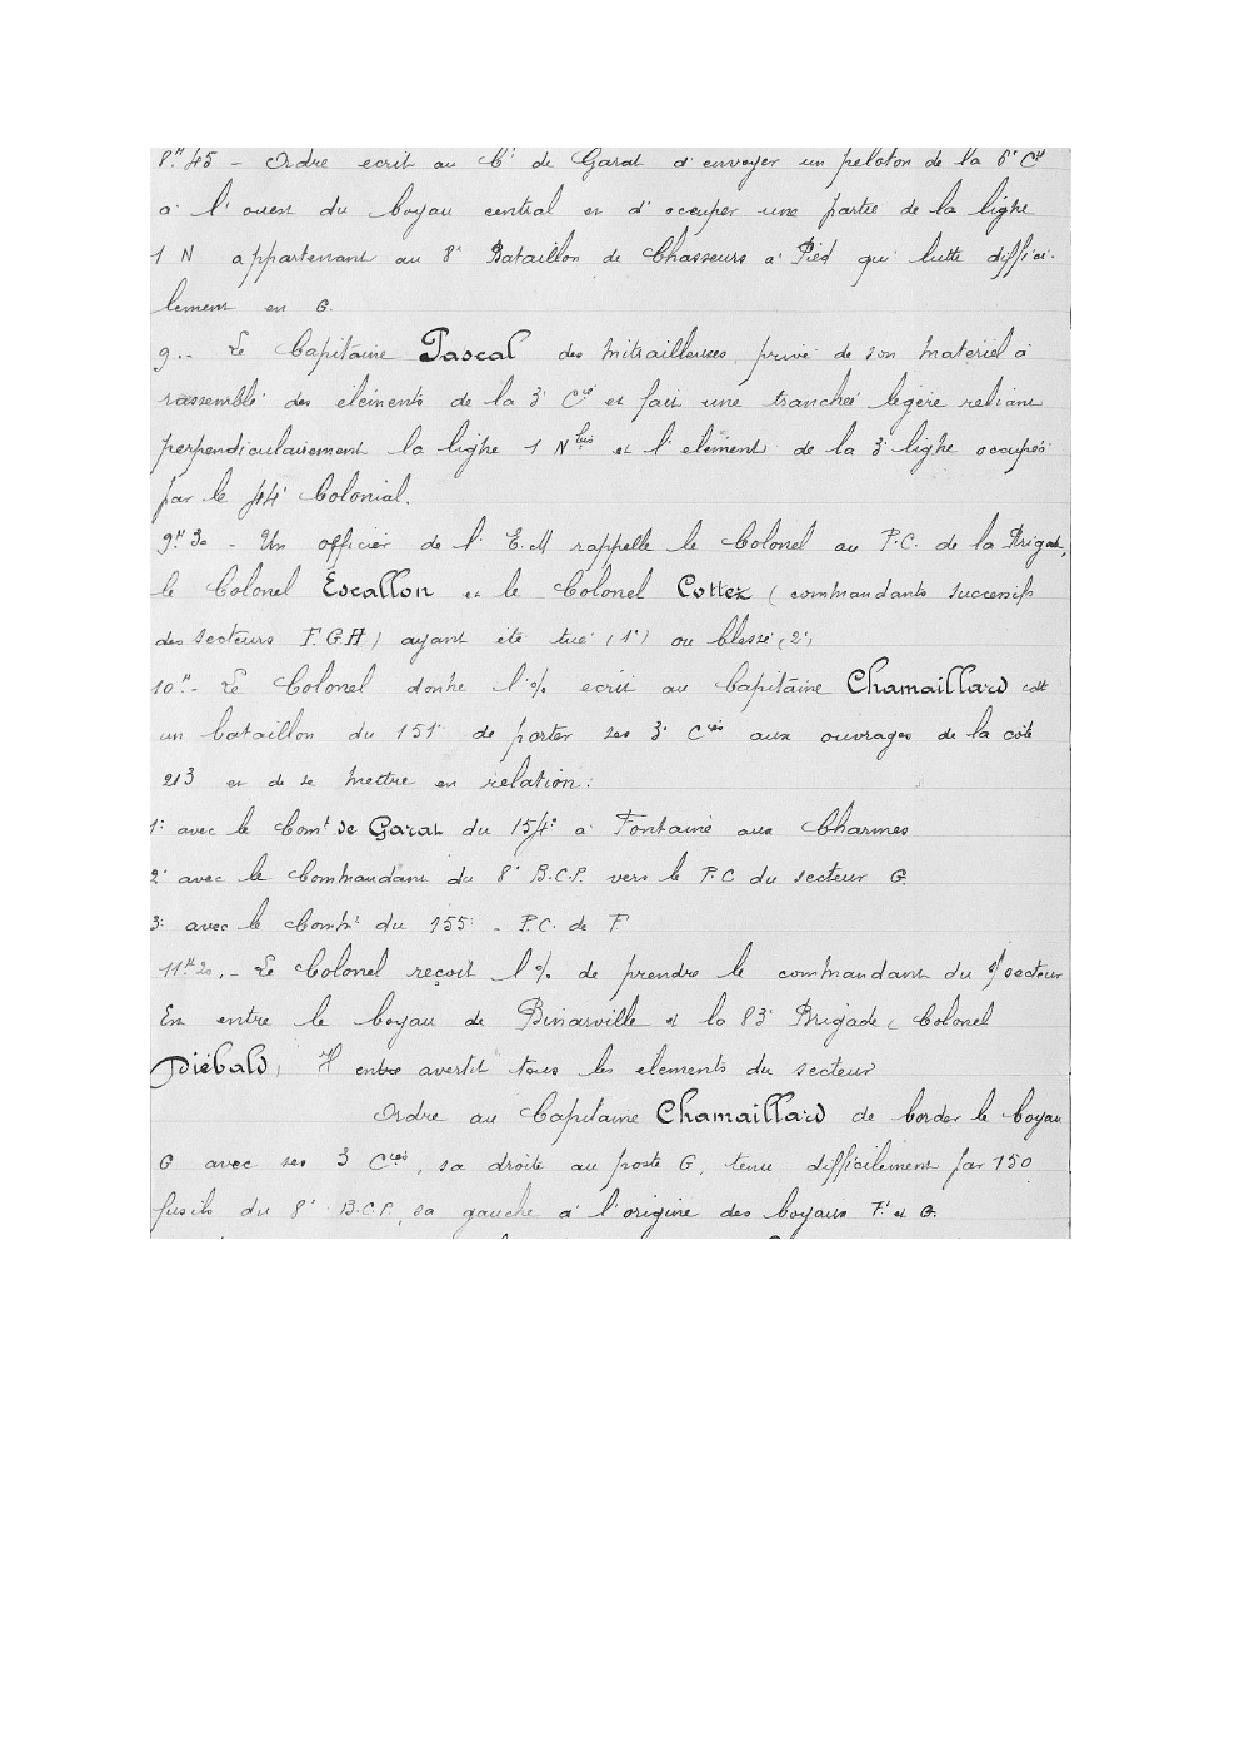 8H45 - Ordre ecrit au Ct de Garat d'envoyer un peloton de la 6e Cie
a l'ouest du boyau central et d'occuper une partie de la ligne
1 N appartenant au 8e Bataillon de Chasseurs à Pied qui lutte diffici-
lement en G.
9.- Le Capitaine Pascal des mitrailleuses privé de son materiel a
rassemblé des elements de la 3e Cie et fait une tranchée légère reliant
perpendiculairement la ligne 1 N bis et l'element de la 3e ligne occupée
par le 44e Colonial.
9H30 - Un officier de l'E.M rappelle le Colonel au P.C. de la Brigade,
le Colonel Escallon et le Colonel Cottez (commandants successifs
des secteurs F.G.H) ayant été tué (1e) ou blessé (2e)
10H- Le Colonel donne l'% ecrit au Capitaine Chamaillard cdt
un bataillon du 151e de porter ses 3e Cies aux ouvrages de la cote
213 et de se mettre en relation:
1: avec le Comt de Garat du 154e à Fontaine aux Charmes
2e avec le Commandant du 8e B.C.P. vers le P.C du secteur G.
3: avec le Comt du 155e - P.C. de F
11H20.- Le Colonel reçoit l'% de prendre le commandant du s/secteur
Est entre le boyau de Binarville et la 83e Brigade (Colonel
Diébald) Il entre avertit tous les elements du secteur
Ordre au Capitaine Chamaillard de border le boyau
G avec ses 3 Cies, sa droite au poste G, tenu difficilement par 150
fusils du 8e B.C.P., sa gauche à l'origine des boyaux F et G.